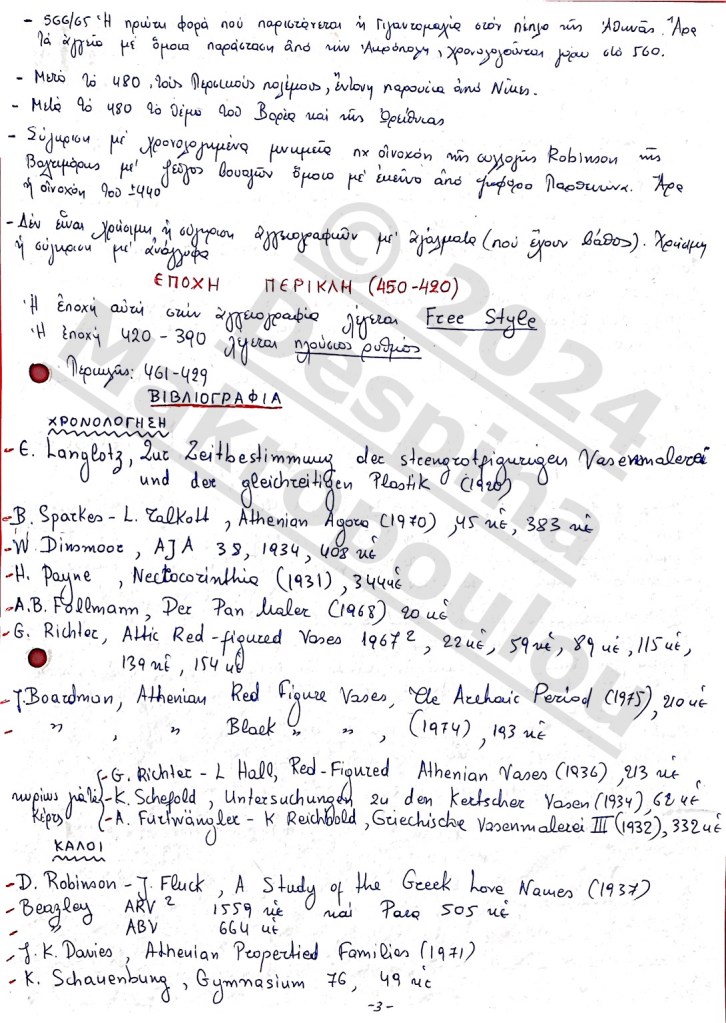 - 566/65 Ἡ πρώτη φορά πού παριστάνεται ἡ Γιγαντομαχία στόν πέπλο τῆς Ἀθηνᾶς. Ἄρα
τά ἀγγεῖα μέ ὅμοια παράσταση ἀπό τήν Ἀκρόπολη, χρονολογοῦνται γύρω στό 560.
- Μετά τό 480, τούς Περσικούς πολέμους, ἔντονη παρουσία ἀπό Νίκες.
- Μετά τό 480 τό θέμα τοῦ Βορέα καί τῆς Ὠρείθυιας
- Σύγκριση μέ χρονολογημένα μνημεῖα πχ οἰνοχόη τῆς συλλογῆς Robinson τῆς
Βαλτιμόρης μέ ζεῦγος βουαλῶν ὅμοιο μέ ἐκεῖνο ἀπό ζωφόρο Παρθενώνα. Ἄρα
ἡ οἰνοχόη τοῦ ±440
- Δέν εἶναι χρήσιμη ἡ σύγκριση ἀγγειογραφιῶν μέ ἀγάλματα (πού ἔχουν βάθος). Χρήσιμη
ἡ σύγκριση μέ ἀνάγλυφα
ΕΠΟΧΗ ΠΕΡΙΚΛΗ (450-420)
Ἡ ἐποχή αὐτή στήν ἀγγειογραφία λέγεται Free Style
Ἡ ἐποχή 420 - 390 λέγεται πλούσιος ρυθμός
Περικλῆς: 461-429
ΒΙΒΛΙΟΓΡΑΦΙΑ
ΧΡΟΝΟΛΟΓΗΣΗ
- E. Langlotz, Zur Zeitbestimmung der strengrotfigurigen Vasenmalerei
und der gleichzeitigen Plastik (1920)
- B. Sparkes - L. Talkott, Athenian Agora (1970), 45 κἑ, 383 κἑ
- W. Dinsmoor, AJA 38, 1934, 408 κἑ
- H. Payne, Nectocorinthia (1931), 344 κἑ
- A.B. Follmann, Der Pan Maler (1968) 20 κἑ
- G. Richter, Attic Red-figured Vases 1967², 22 κἑ, 59 κἑ, 89 κἑ, 115 κἑ,
139 κἑ, 154 κἑ
- J. Boardman, Athenian Red Figure Vases, The Archaic Period (1975), 210 κἑ
- " , " Black " " , (1974), 193 κἑ
- G. Richter - L Hall, Red-Figured Athenian Vases (1936), 213 κἑ
κυρίως γιά τά - K. Schefold, Untersuchungen zu den Kertscher Vasen (1934), 62 κἑ
Κέρτς - A. Furtwängler - K Reichhold, Griechische Vasenmalerei III (1932), 332 κἑ
ΚΑΛΟΙ
- D. Robinson - J. Fluck, A Study of the Greek Love Names (1937)
- Beazley ARV² 1559 κἑ καί Para 505 κἑ
- " ABV 664 κἑ
- J. K. Davies, Athenian Propertied Families (1971)
- K. Schauenburg, Gymnasium 76, 49 κἑ
-3-
© 2024
Despina
Makropoulou